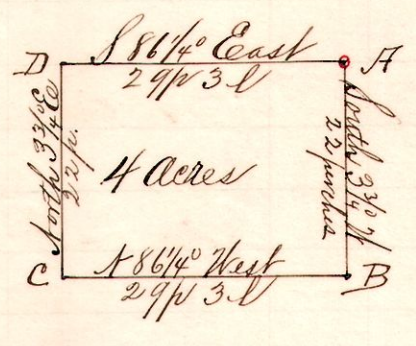 D S 86¼° East A
29p 3l
North 3¾° E
22 p.
4 Acres
South 3¾° W
22 perches
C N 86¼° West B
29p 3l